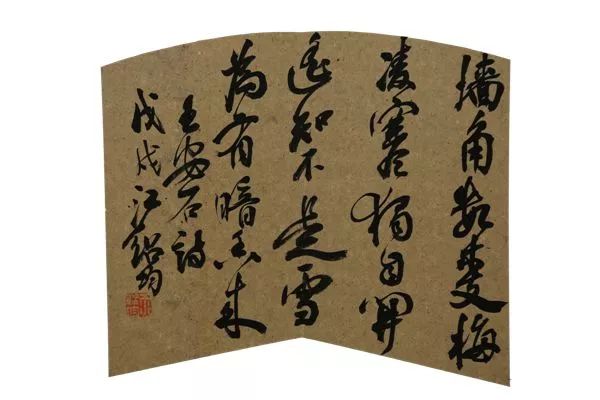 墙角数枝梅
凌寒獨自開
遥知不是雪
為有暗香来
王安石詩
戊戌江